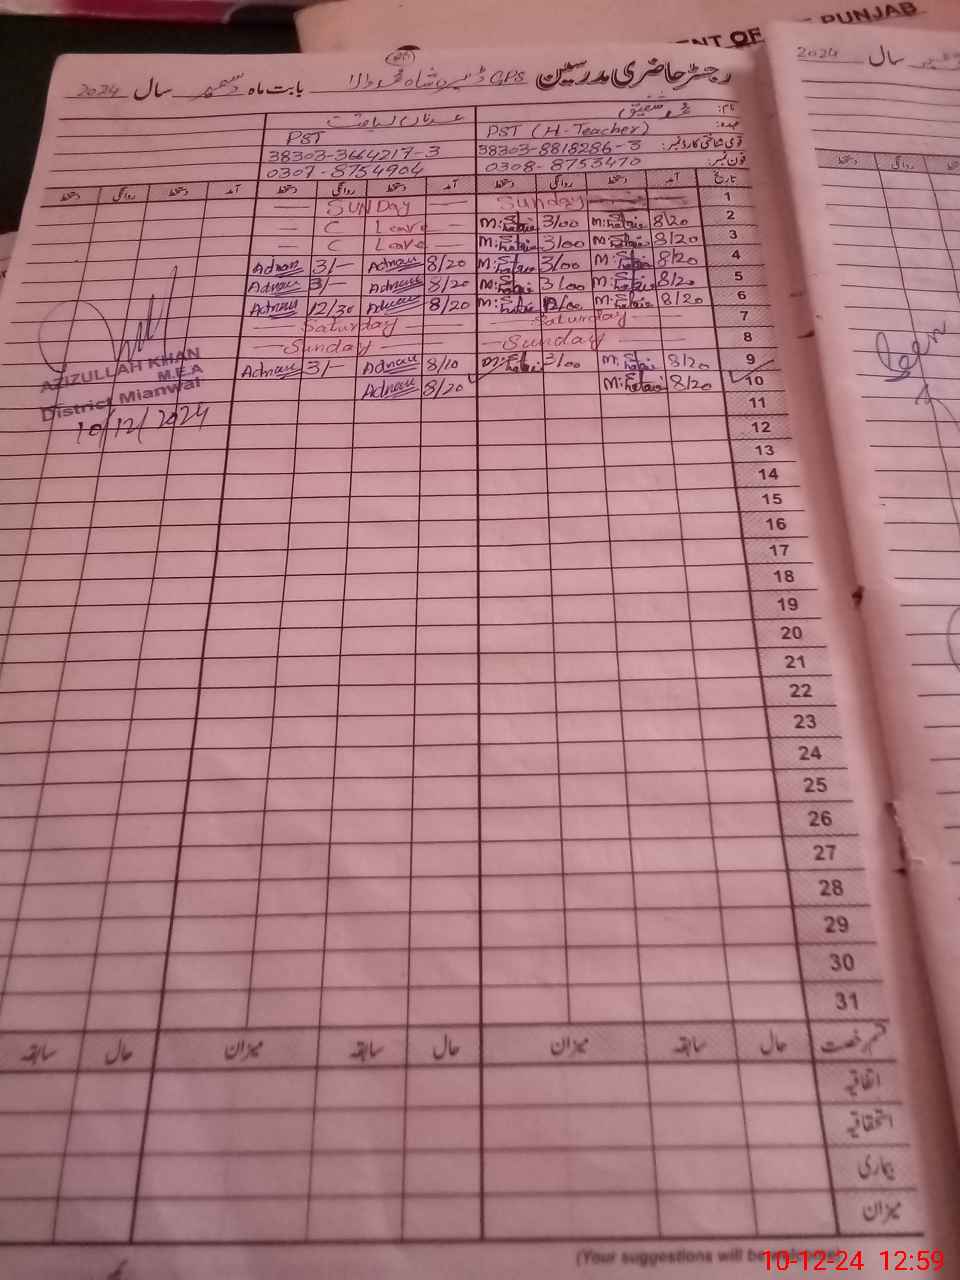 GOVERNMENT OF THE PUNJAB
رجسٹر حاضری مدرسین GPS بابت ماہ دسمبر سال 2024
سال 2024
نام: محمد شفیق
عہدہ: PST (H-Teacher) PST
قومی شناختی کارڈ نمبر: 38303-8818286-3 38303-3664217-3
فون نمبر: 0308-8753470 0307-8754904
تاریخ آمد دستخط روانگی دستخط آمد دستخط روانگی دستخط آمد دستخط روانگی دستخط
1 Sunday SUNDAY
2 8/20 3/00 C Leave
3 8/20 3/00 C Leave
4 8/20 3/00 8/20 Adnan 3/- Adnan
5 8/20 3/00 8/20 Adnan 3/- Adnan
6 8/20 12/00 8/20 Adnan 12/30 Adnan
7 Saturday Saturday
8 Sunday Sunday
9 8/20 3/00 8/10 Adnan 3/- Adnan
10 8/20 8/20 Adnan
AZIZULLAH KHAN
M.E.A
District Mianwali
10/12/2024
Seen
11
12
13
14
15
16
17
18
19
20
21
22
23
24
25
26
27
28
29
30
31
قسم رخصت حال سابقہ میزان حال سابقہ میزان حال سابقہ
اتفاقیہ
استحقاقیہ
بیماری
میزان
(Your suggestions will be
10-12-24 12:59